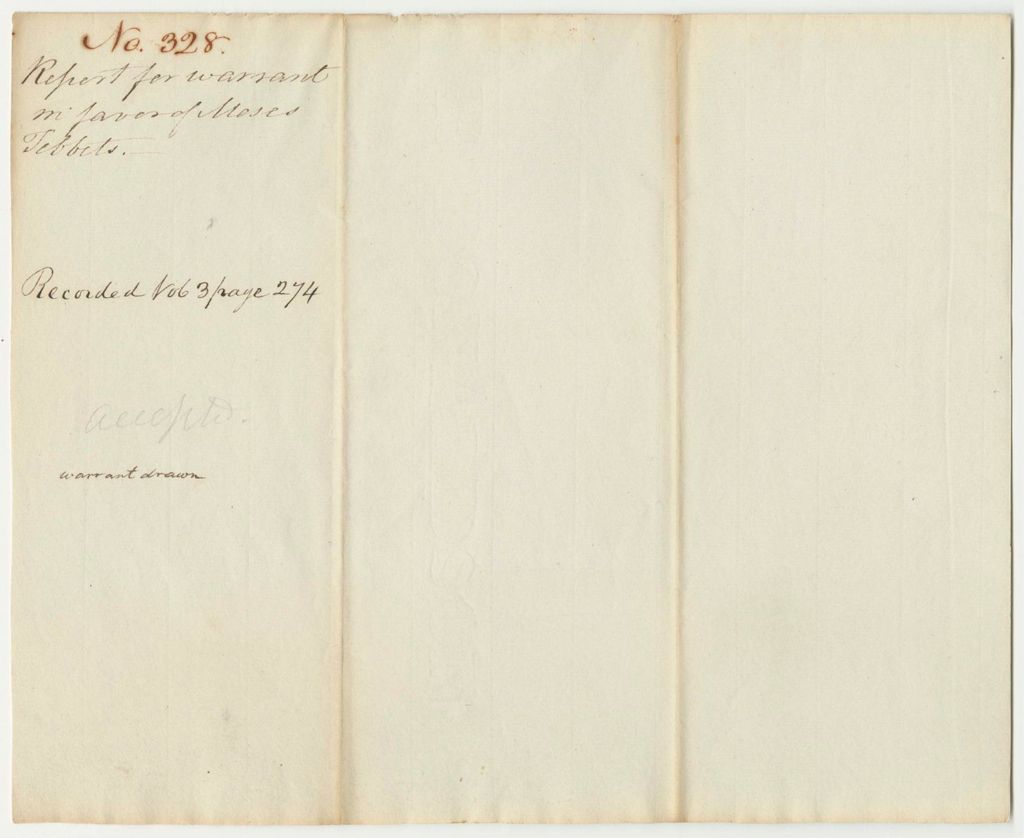 No. 328.
Report for warrant
in favor of Moses
Tebbets.
Recorded Vol 3 page 274
accepted.
warrant drawn